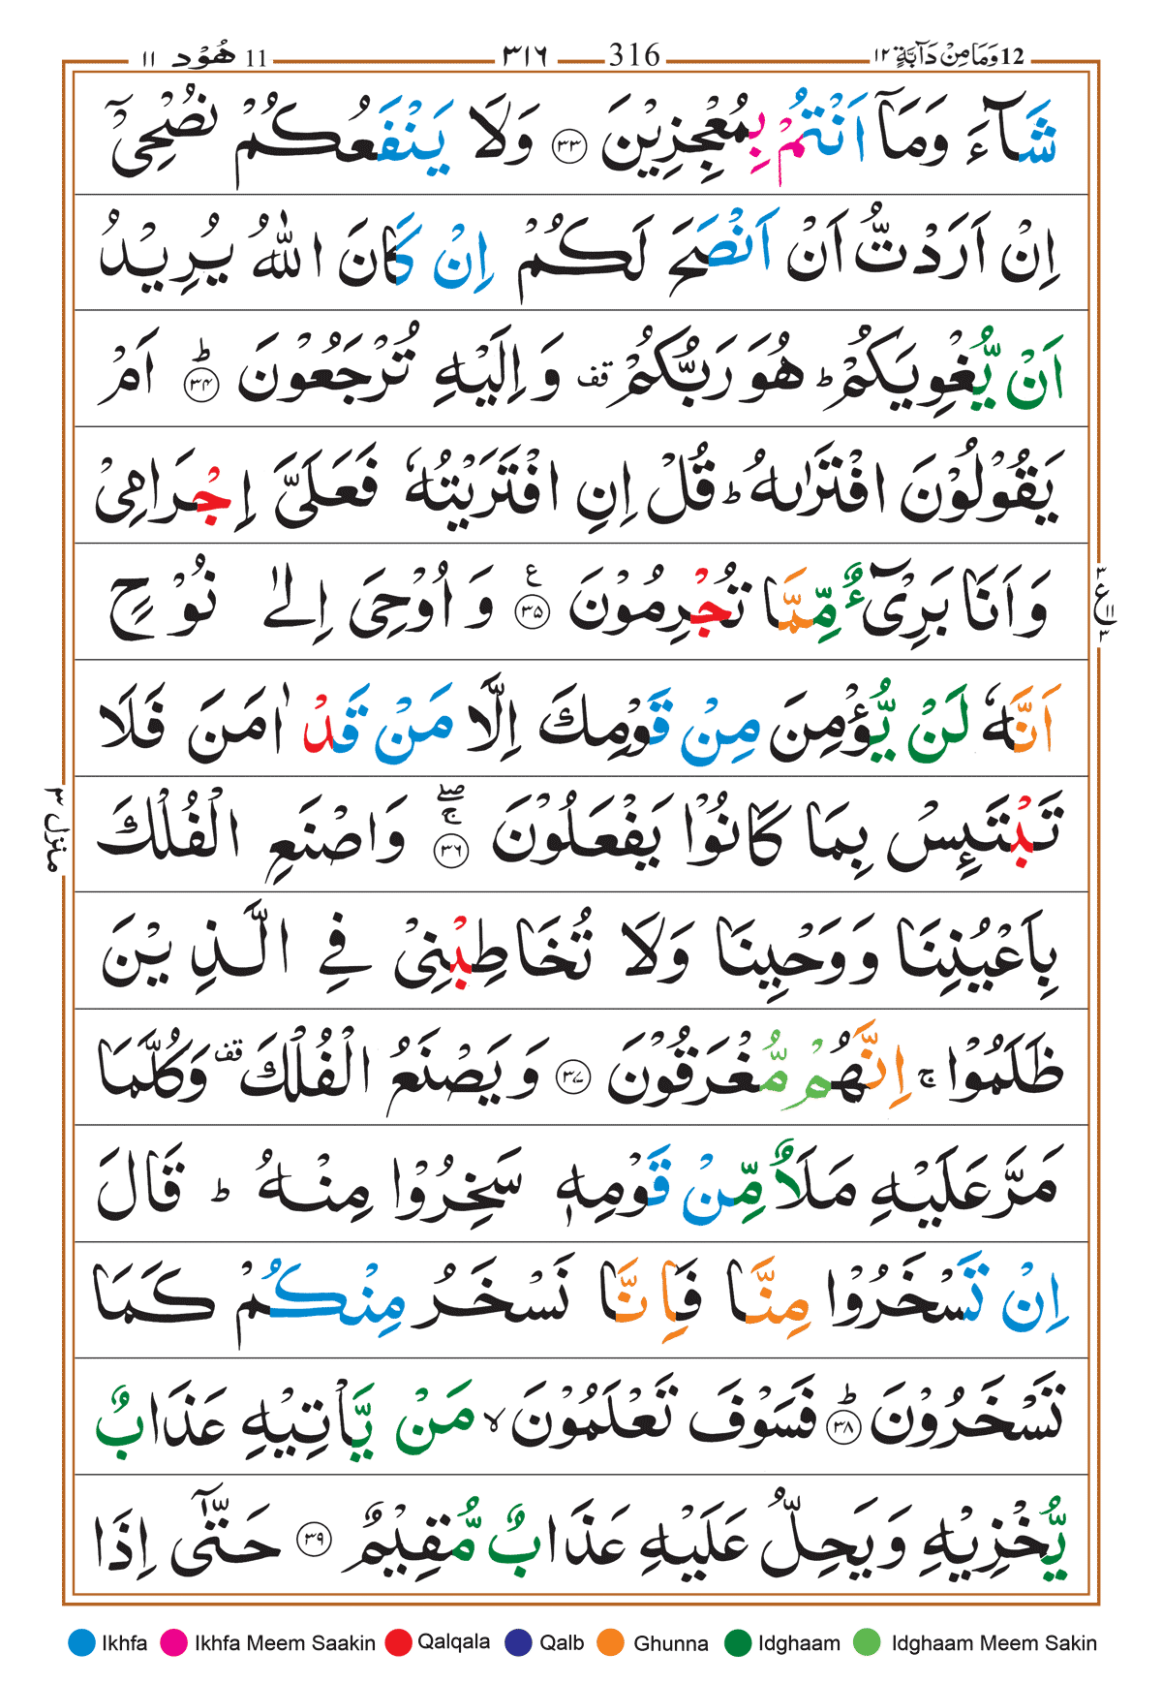 12 وَمَا مِنْ دَآبَّةٍ ١٢ 316 ٣١٦ 11 هُوْد ١١
شَآءَ وَمَآ اَنْتُمْ بِمُعْجِزِيْنَ ٣٣ وَلَا يَنْفَعُكُمْ نُصْحِيْٓ
اِنْ اَرَدْتُّ اَنْ اَنْصَحَ لَكُمْ اِنْ كَانَ اللّٰهُ يُرِيْدُ
اَنْ يُّغْوِيَكُمْ ؕ هُوَ رَبُّكُمْ قف وَاِلَيْهِ تُرْجَعُوْنَ ؕ ٣٤ اَمْ
يَقُوْلُوْنَ افْتَرٰىهُ ؕ قُلْ اِنِ افْتَرَيْتُهٗ فَعَلَيَّ اِجْرَامِيْ
وَاَنَا بَرِيْٓءٌ مِّمَّا تُجْرِمُوْنَ ٣٥ ع وَاُوْحِيَ اِلٰى نُوْحٍ
٣ ع ١١ ٣
اَنَّهٗ لَنْ يُّؤْمِنَ مِنْ قَوْمِكَ اِلَّا مَنْ قَدْ اٰمَنَ فَلَا
تَبْتَىِٕسْ بِمَا كَانُوْا يَفْعَلُوْنَ ۖۚ ٣٦ وَاصْنَعِ الْفُلْكَ
منزل ٣
بِاَعْيُنِنَا وَوَحْيِنَا وَلَا تُخَاطِبْنِيْ فِي الَّذِيْنَ
ظَلَمُوْا ۚ اِنَّهُمْ مُّغْرَقُوْنَ ٣٧ وَيَصْنَعُ الْفُلْكَ قف وَكُلَّمَا
مَرَّ عَلَيْهِ مَلَاٌ مِّنْ قَوْمِهٖ سَخِرُوْا مِنْهُ ؕ قَالَ
اِنْ تَسْخَرُوْا مِنَّا فَاِنَّا نَسْخَرُ مِنْكُمْ كَمَا
تَسْخَرُوْنَ ؕ ٣٨ فَسَوْفَ تَعْلَمُوْنَ ۙ مَنْ يَّاْتِيْهِ عَذَابٌ
يُّخْزِيْهِ وَيَحِلُّ عَلَيْهِ عَذَابٌ مُّقِيْمٌ ٣٩ حَتّٰٓى اِذَا
Ikhfa Ikhfa Meem Saakin Qalqala Qalb Ghunna Idghaam Idghaam Meem Sakin